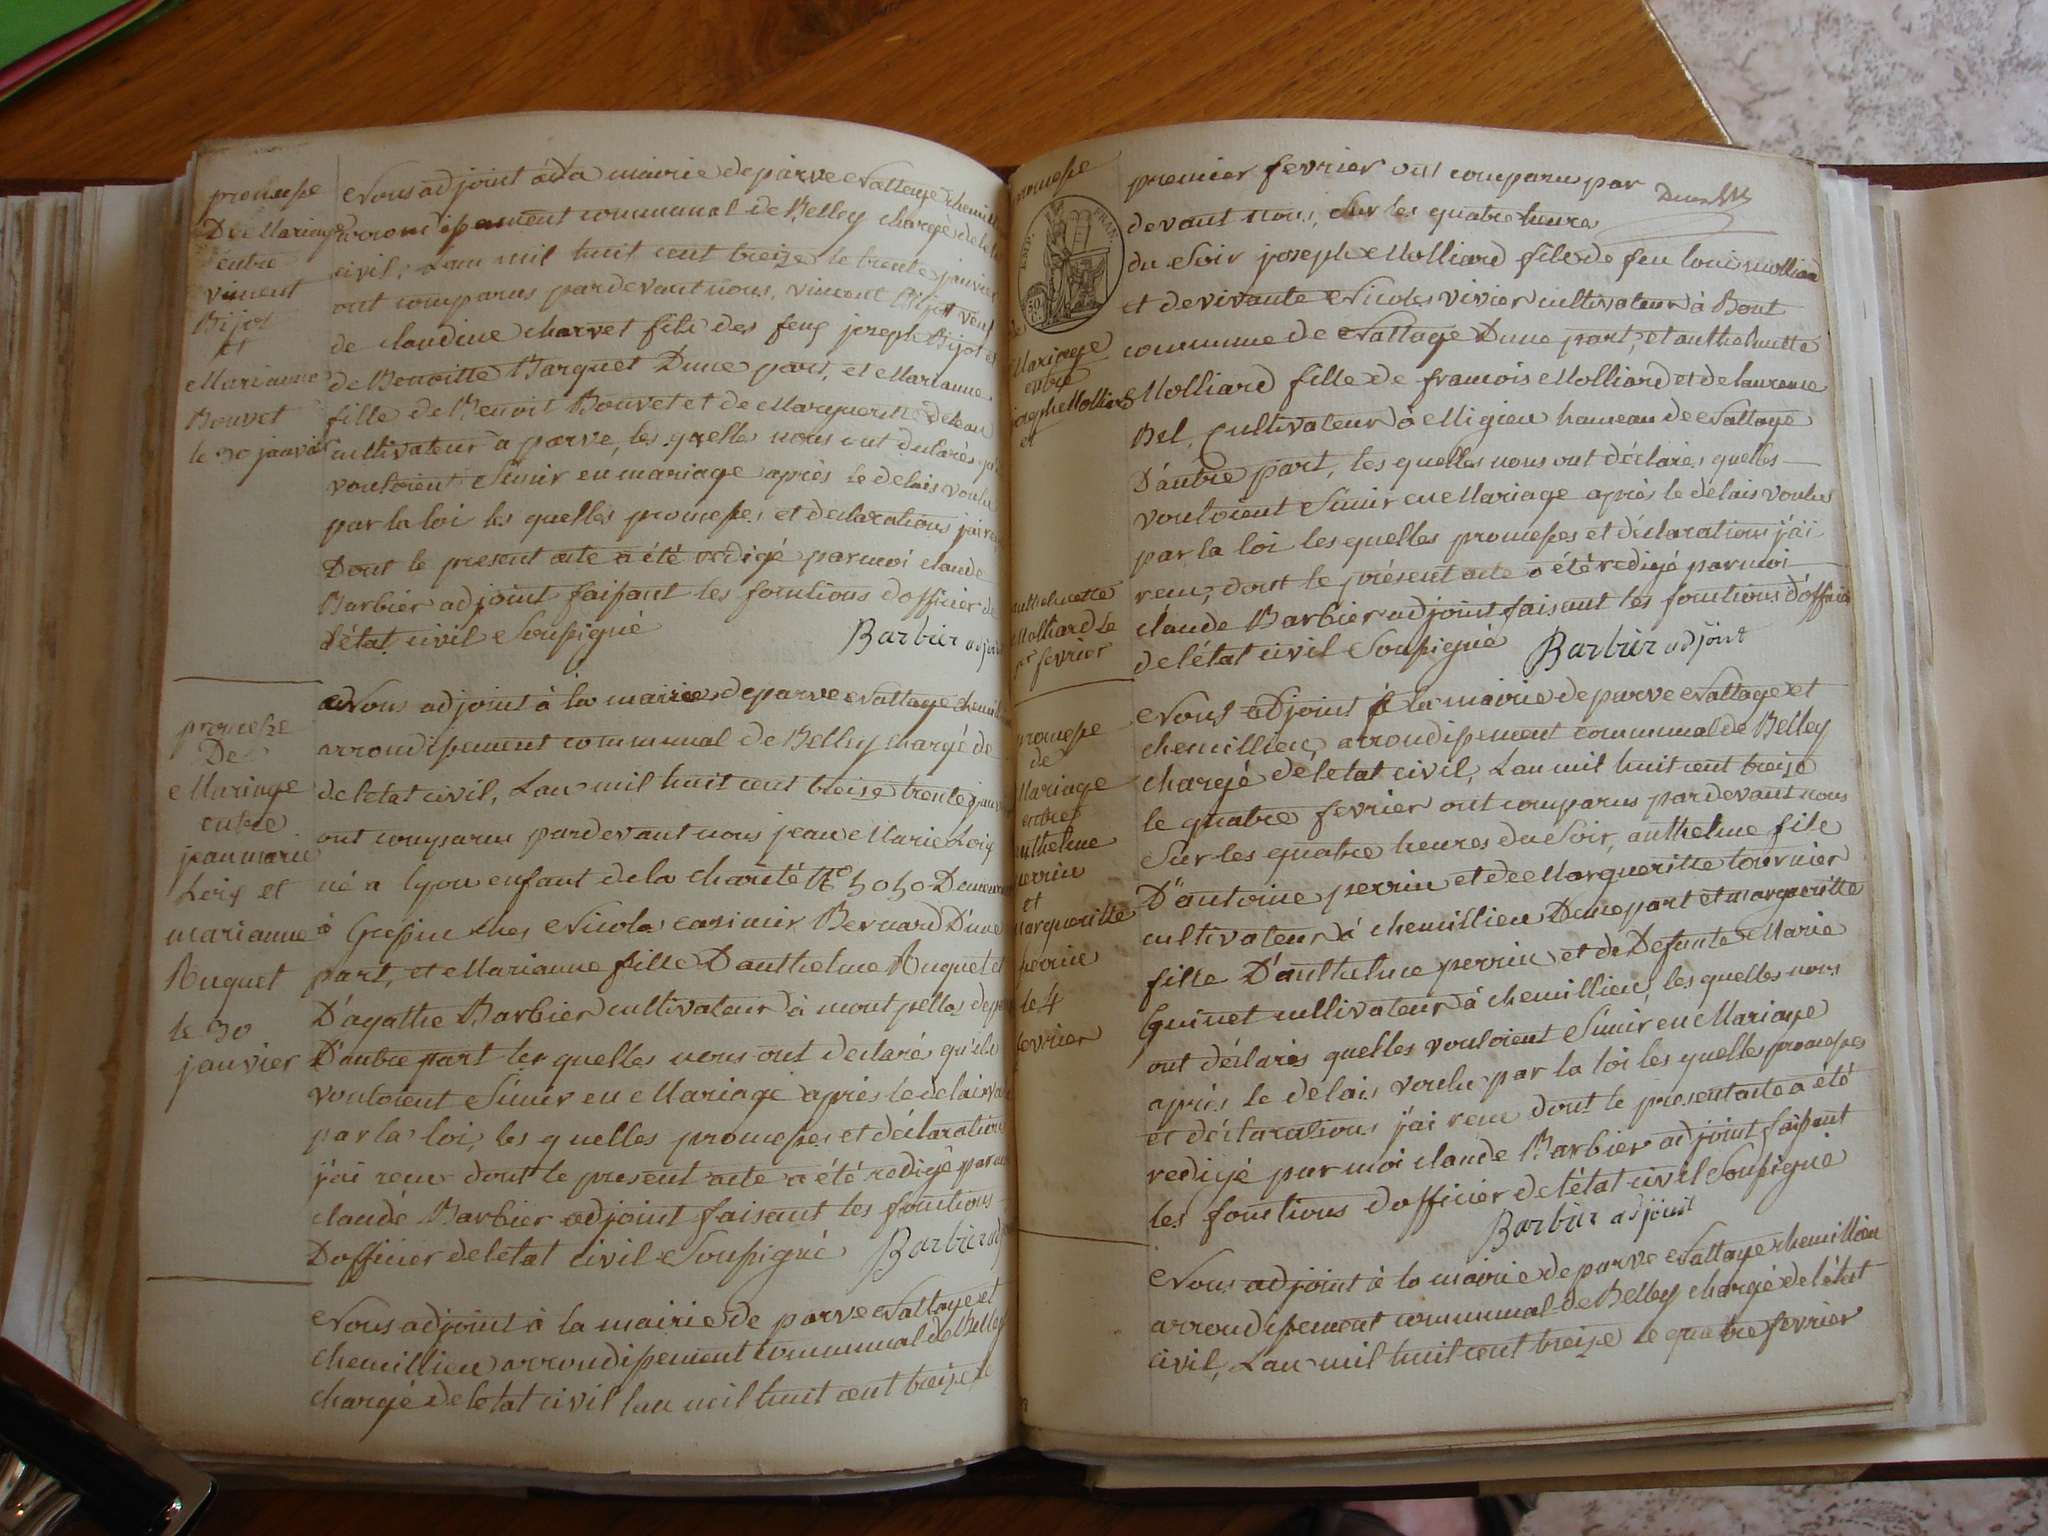 promesse
De Mariage
entre
vincent
Bijot
et
Marianne
Bouvet
le 30 janvier
Nous adjoint à la mairie de parve Nattage chemilli
arrondissement communal de Belley chargé de le
civil, Lan mil huit cent treize le trente janvier
ont comparus pardevant nous, vincent Bijot veuf
de claudine charvet fils des feus joseph Bijot et
de Benoitte Marguet Dune part, et Marianne
fille de Benoit Bouvet et de Margueritte
cultivateur a parve, les quelles nous ont declarés
vouloient Sunir en mariage après le delais voulu
par la loi les quelles promesses et declarations j'ai
Dont le present acte a été redigé par moi claude
Barbier adjoint faisant les fonctions Dofficier de
L'état civil Soussigné
Barbier adjoint
promesse
De
Mariage
entre
jean marie
Loïs et
marianne
Ruguet
le 30
janvier
Nous adjoint à la mairie de parve Nattage chemilli
arrondissement communal de Belley chargé de
de letat civil, Lan mil huit cent treize trente janvier
ont comparus pardevant nous jean Marie Loïs
né a lyon enfant de la charité No 5050 Demeurant
à chez Nicolas casimir Bernard D'une
part, et Marianne fille D'anthelme Ruguet et
D'agathe Barbier cultivateur à mont pellas de
D'autre part les quelles nous ont declaré qu'ils
vouloient Sunir en Mariage après le delais
par la loi, les quelles promesses et déclaration
j'ai recu dont le present acte a été redigé par
claude Barbier adjoint faisant les fonctions
Dofficier de letat civil Soussigné
Barbier adj
Nous adjoint à la mairie de parve Nattage et
chemillieu arrondissement communal de Belley
chargé de letat civil lan mil huit cent treize le
promesse
EMP. FRAN.
50
de
Mariage
entre
joseph Molliard
et
anthelmette
Molliard Le
1er fevrier
premier fevrier ont comparu par
devant nous, Sur les quatre heures
du Soir joseph Molliard fils de feu louis molliard
et de vivante Nicoles vivier cultivateur à Bont
commune de Nattage Dune part, et anthelmette
Molliard fille de francois Molliard et de laurence
Bel, Cultivateur à Migieu hameau de Nattage
D'autre part, les quelles nous ont déclarés quelles
vouloient Sunir en Mariage après le delais voulus
par la loi les quelles promesses et déclarations j'ai
recu, dont le présent acte a été redigé par moi
claude Barbier adjoint faisant les fonctions d'officier
de l'état civil Soussigné
Barbier adjoint
promesse
de
Mariage
entre
anthelme
perrin
et
margueritte
perrin
le 4
fevrier
Nous adjoint à la mairie de parve Nattage et
chemillieu, arrondissement communal de Belley
chargé de letat civil, Lan mil huit cent treize
le quatre fevrier ont comparus pardevant nous
Sur les quatre heures du Soir, anthelme fils
D'antoine perrin et de Margueritte tournier
cultivateur à chemillieu Dune part et margueritte
fille D'anthelme perrin et de Defunte Marie
Guinet cultivateur à chemillieu, les quelles nous
ont déclarés quelles vouloient Sunir en Mariage
après le delais voulu par la loi les quelles promesses
et déclarations j'ai recu dont le present acte a été
redigé par moi claude Barbier adjoint faisant
les fonctions dofficier de létat civil Soussigné
Barbier adjoint
Nous adjoint à la mairie de parve Nattage chemillieu
arrondissement communal de Belley chargé de létat
civil, Lan mil huit cent treize le quatre fevrier